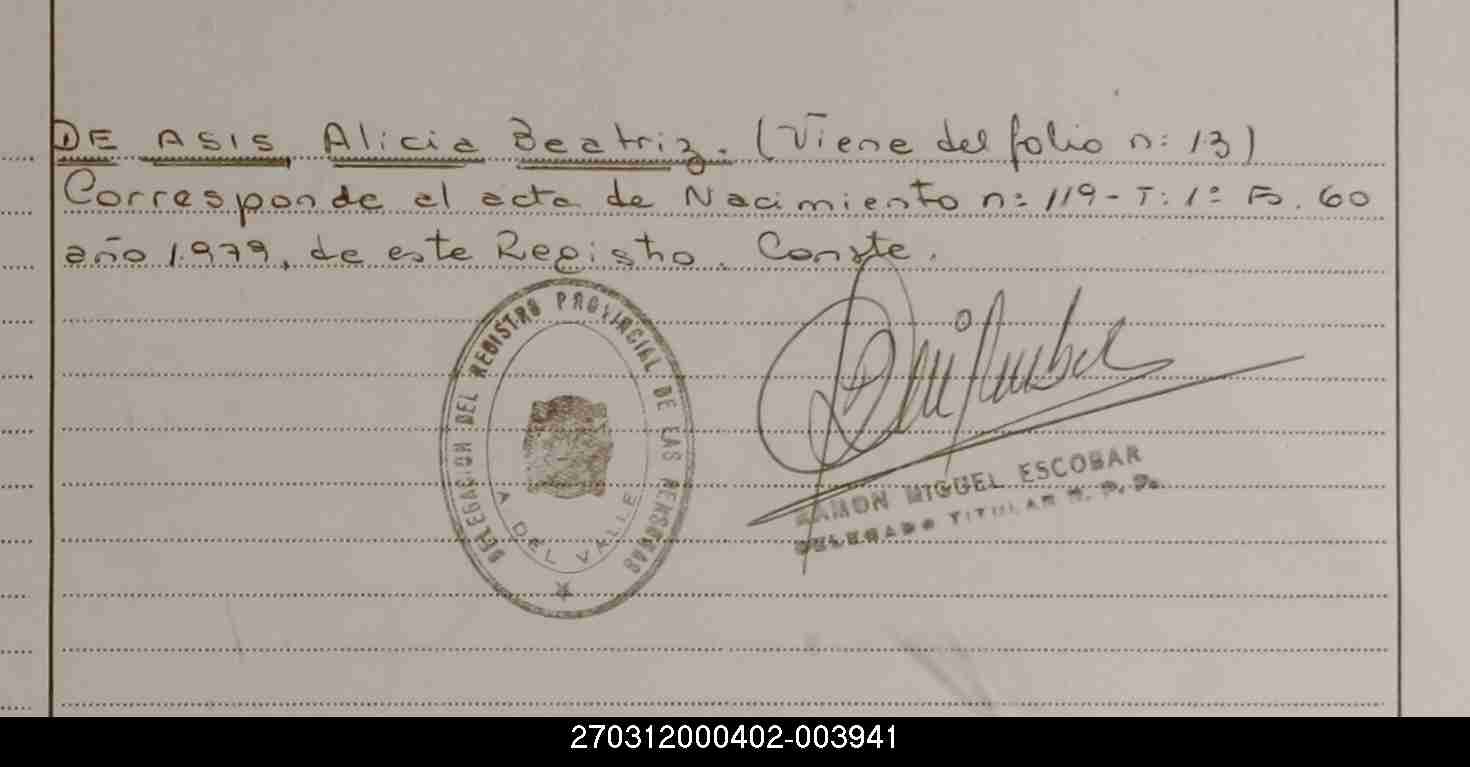 DE ASIS Alicia Beatriz. (Viene del folio n: 13)
Corresponde al acta de Nacimiento n: 119 - T: 1º Fº. 60
año 1.979, de este Registro. Conste.
DELEGACION DEL REGISTRO PROVINCIAL DE LAS PERSONAS
A DEL VALLE
RAMON MIGUEL ESCOBAR
DELEGADO TITULAR R. P. P.
270312000402-003941